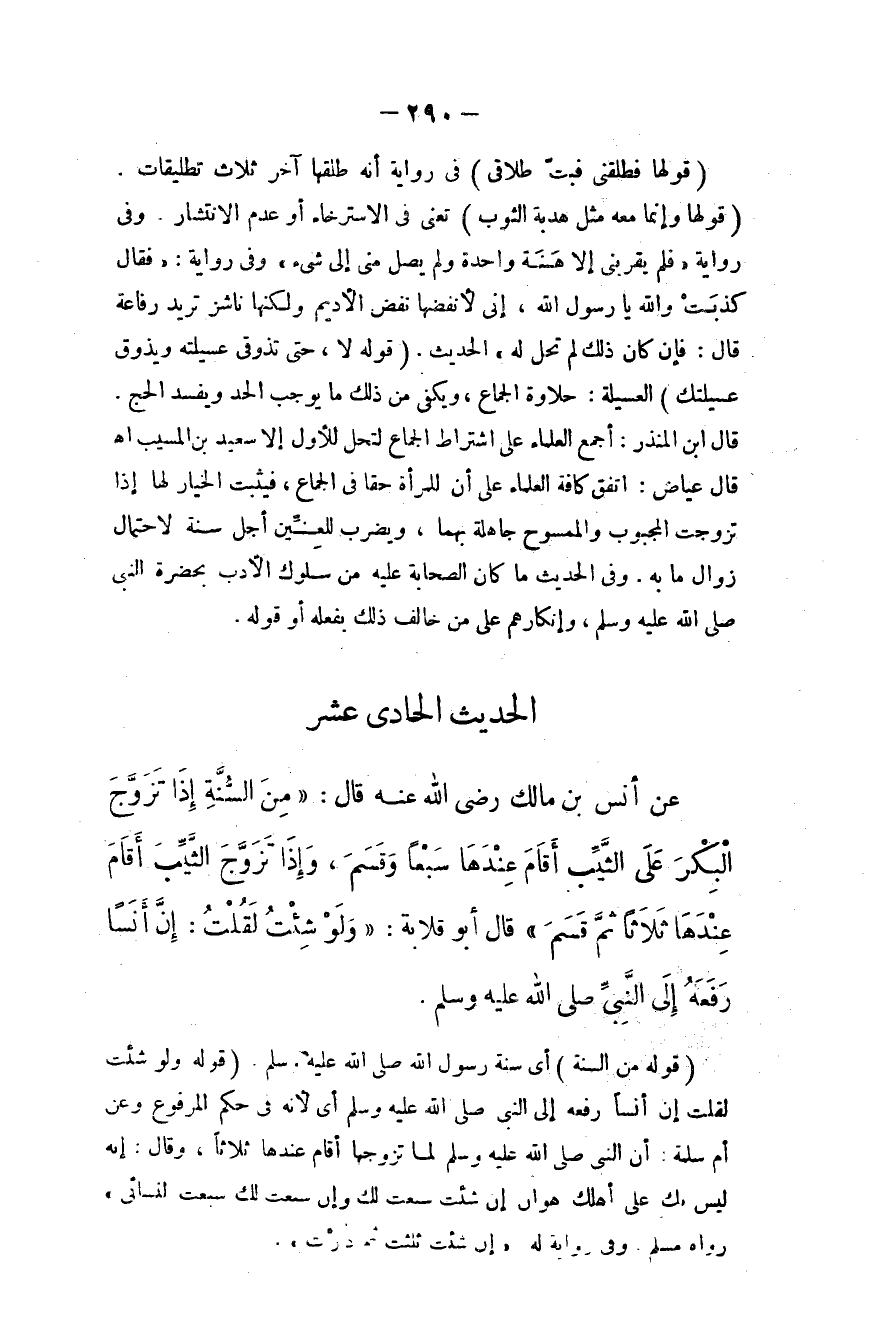 — ٢٩٠ —
( قولها فطلقنى فبتّ طلاقى ) فى رواية أنه طلقها آخر ثلاث تطليقات .
( قولها وإنما معه مثل هدبة الثوب ) تعنى فى الاسترخاء أو عدم الانتشار . وفى
رواية « فلم يقربنى إلا هَنَة واحدة ولم يصل منى إلى شىء » وفى رواية : « فقال
كذبَتْ والله يا رسول الله ، إنى لأنفضها نفض الأديم ولكنها ناشز تريد رفاعة
قال : فإن كان ذلك لم تحل له » الحديث . ( قوله لا ، حتى تذوقى عسيلته ويذوق
عسيلتك ) العسيلة : حلاوة الجماع ، ويكنى من ذلك ما يوجب الحد ويفسد الحج .
قال ابن المنذر : أجمع العلماء على اشتراط الجماع لتحل للأول إلا سعيد بن المسيب اهـ
قال عياض : اتفق كافة العلماء على أن للمرأة حقا فى الجماع ، فيثبت الخيار لها إذا
تزوجت المجبوب والممسوح جاهلة بهما ، ويضرب للعِنِّين أجل سنة لاحتمال
زوال ما به . وفى الحديث ما كان الصحابة عليه من سلوك الأدب بحضرة النبى
صلى الله عليه وسلم ، وإنكارهم على من خالف ذلك بفعله أو قوله .
الحديث الحادى عشر
عن أنس بن مالك رضى الله عنه قال : « مِنَ السُّنَّةِ إِذَا تَزَوَّجَ
الْبِكْرَ عَلَى الثَّيِّبِ أَقَامَ عِنْدَهَا سَبْعاً وَقَسَمَ ، وَإِذَا تَزَوَّجَ الثَّيِّبَ أَقَامَ
عِنْدَهَا ثَلَاثاً ثُمَّ قَسَمَ » قال أبو قلابة : « وَلَوْ شِئْتُ لَقُلْتُ : إِنَّ أَنَسًا
رَفَعَهُ إِلَى النَّبِيِّ صلى الله عليه وسلم .
( قوله من السنة ) أى سنة رسول الله صلى الله عليه وسلم . ( قوله ولو شئت
لقلت إن أنساً رفعه إلى النبى صلى الله عليه وسلم أى لأنه فى حكم المرفوع وعن
أم سلمة : أن النبى صلى الله عليه وسلم لما تزوجها أقام عندها ثلاثاً ، وقال : إنه
ليس بك على أهلك هوان إن شئت سبعت لك وإن سبعت لك سبعت لنسائى »
رواه مسلم . وفى رواية له « إن شئت ثلثت ثم درت » .